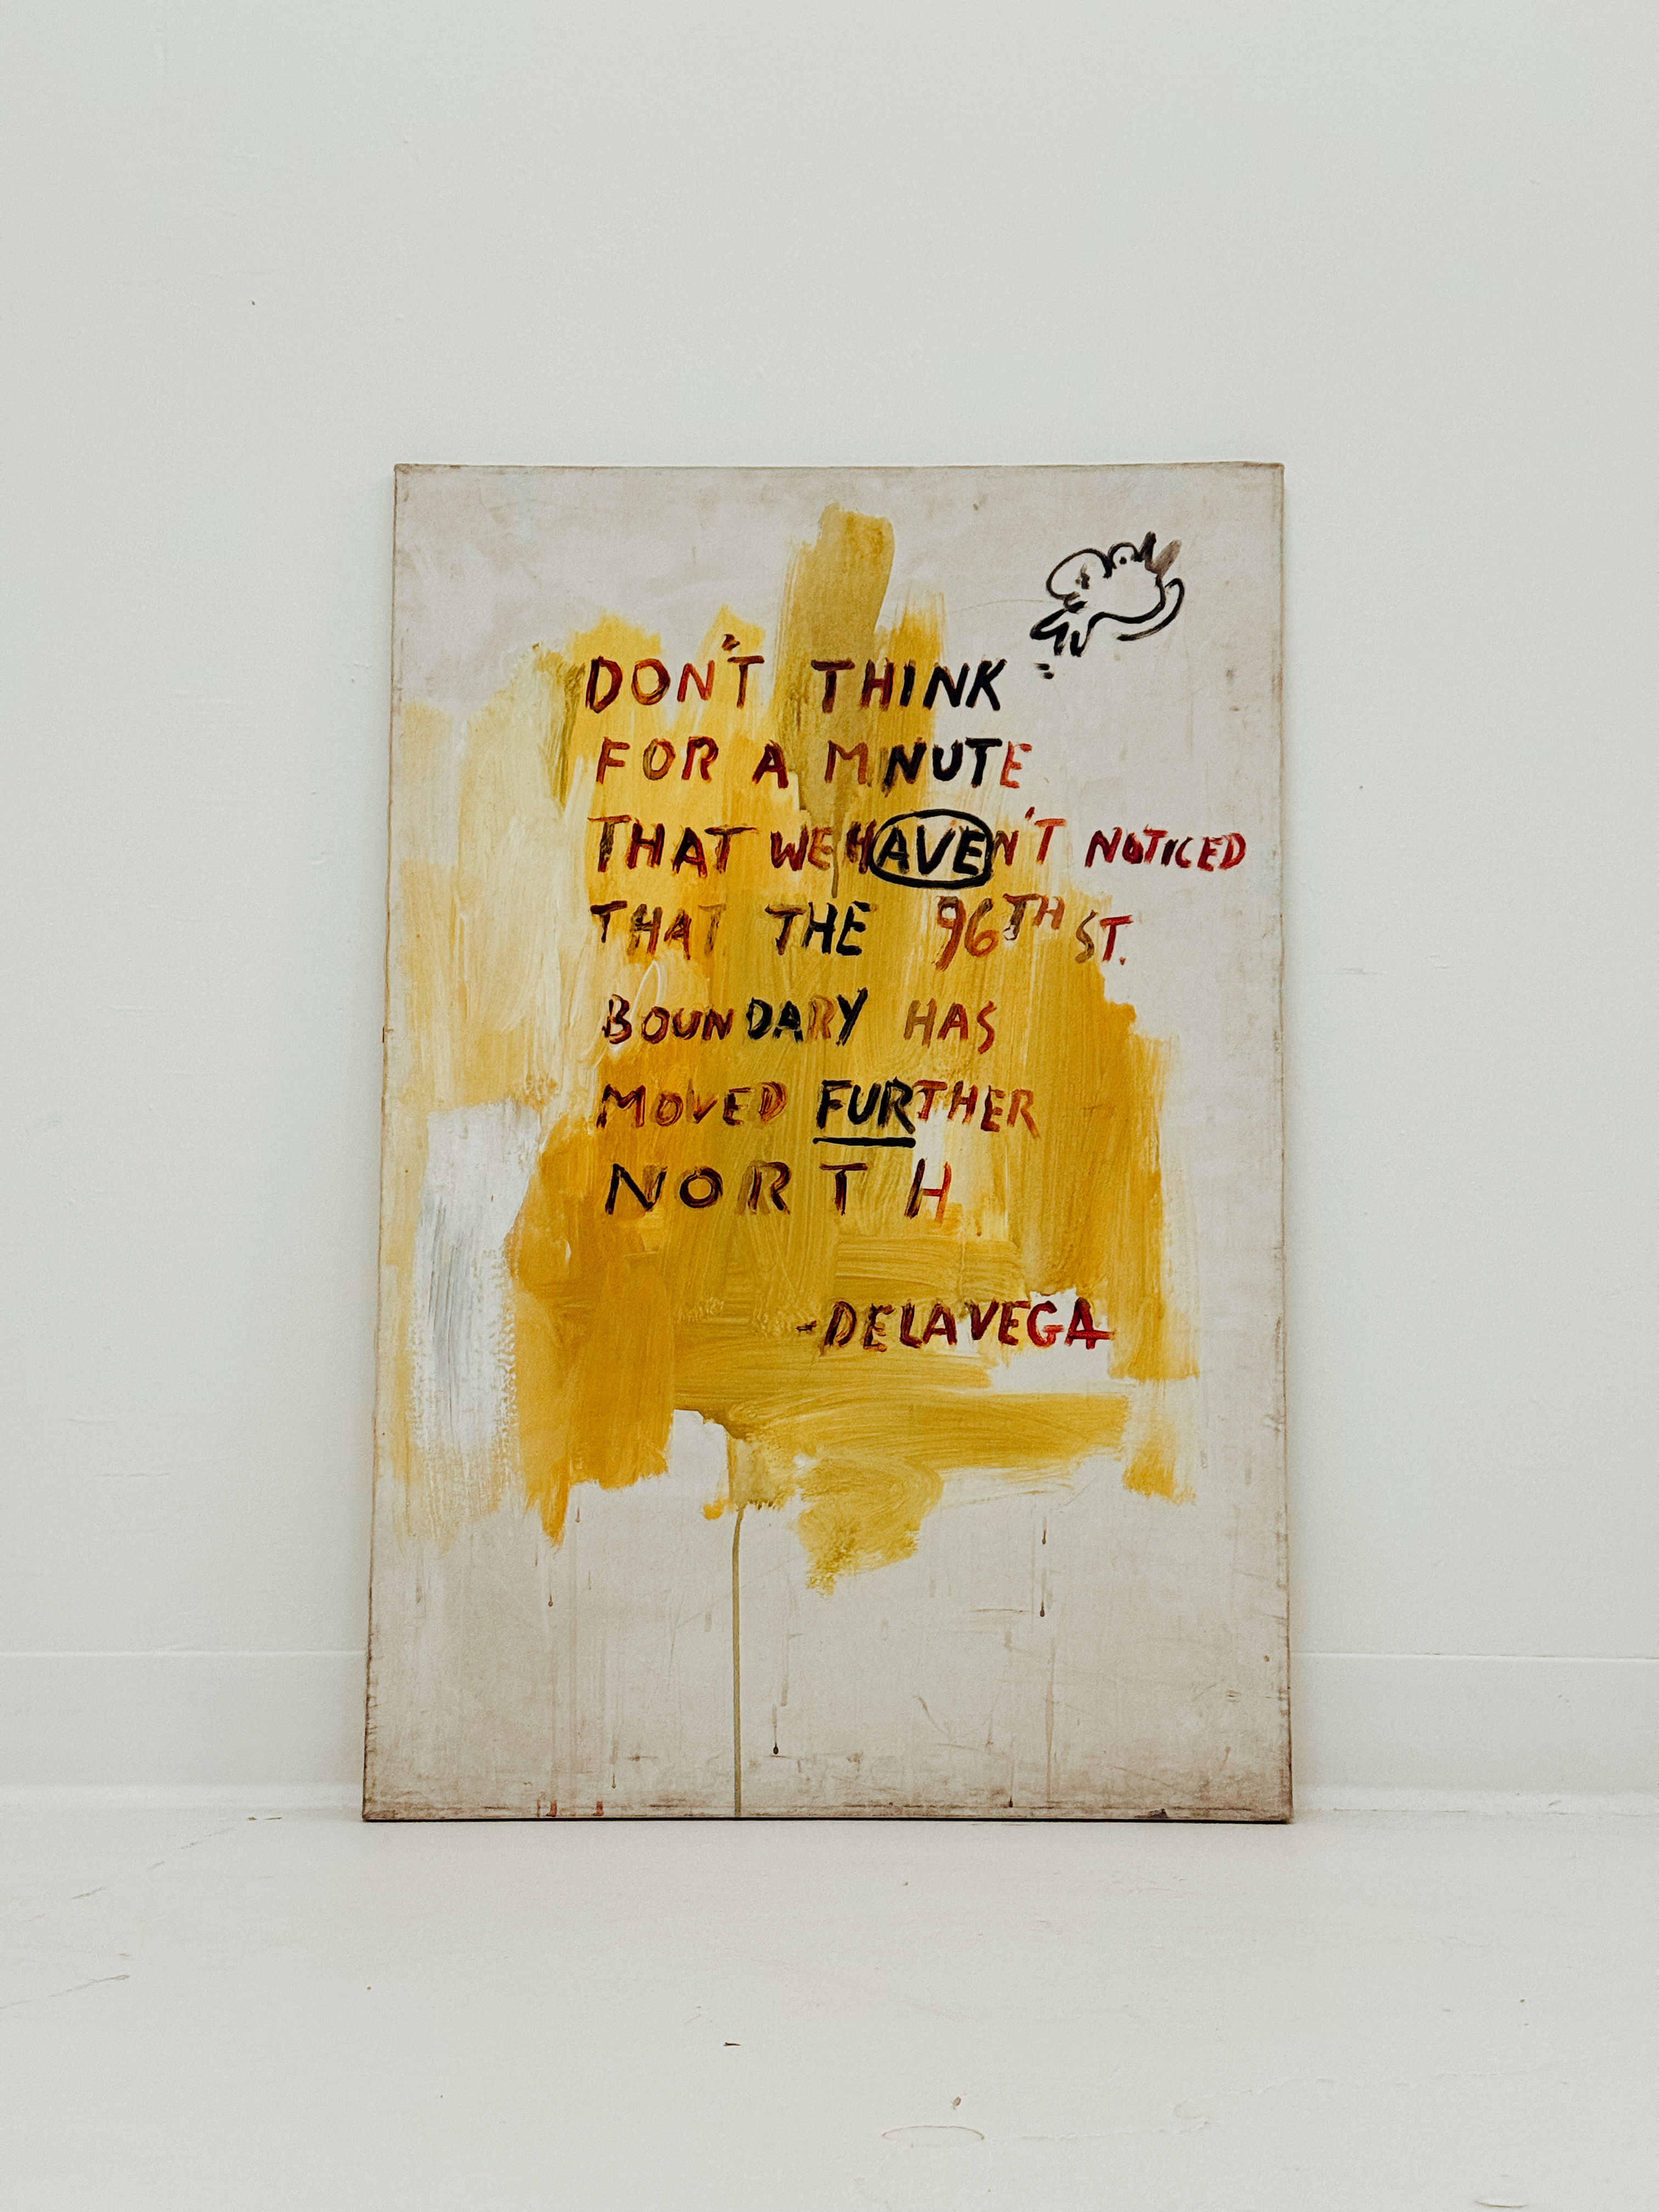 DON'T THINK
FOR A MINUTE
THAT WE HAVEN'T NOTICED
THAT THE 96TH ST.
BOUNDARY HAS
MOVED FURTHER
NORTH
-DE LA VEGA